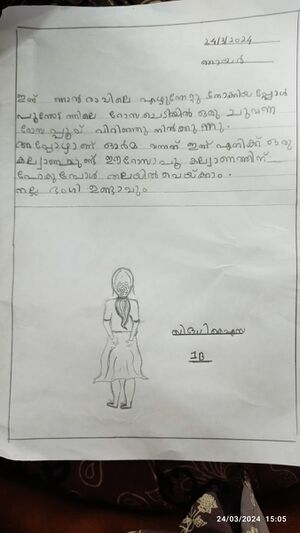 24/3/2024
ഞായർ
ഇന്ന് ഞാൻ രാവിലെ എഴുന്നേറ്റു നോക്കിയപ്പോൾ
റോസചെടിയിൽ ഒരു ചുവന്ന
റോസപ്പൂവ് വിരിഞ്ഞു നിൽക്കുന്നു.
അപ്പോഴാണ് ഓർമ വന്നത് ഇന്ന് എനിക്ക് ഒരു
കല്യാണമുണ്ട് ഈ റോസാപൂ കല്യാണത്തിന്
പോകുമ്പോൾ തലയിൽ വെയ്ക്കാം.
നല്ല ഭംഗി ഉണ്ടാവും
1B
24/03/2024 15:05